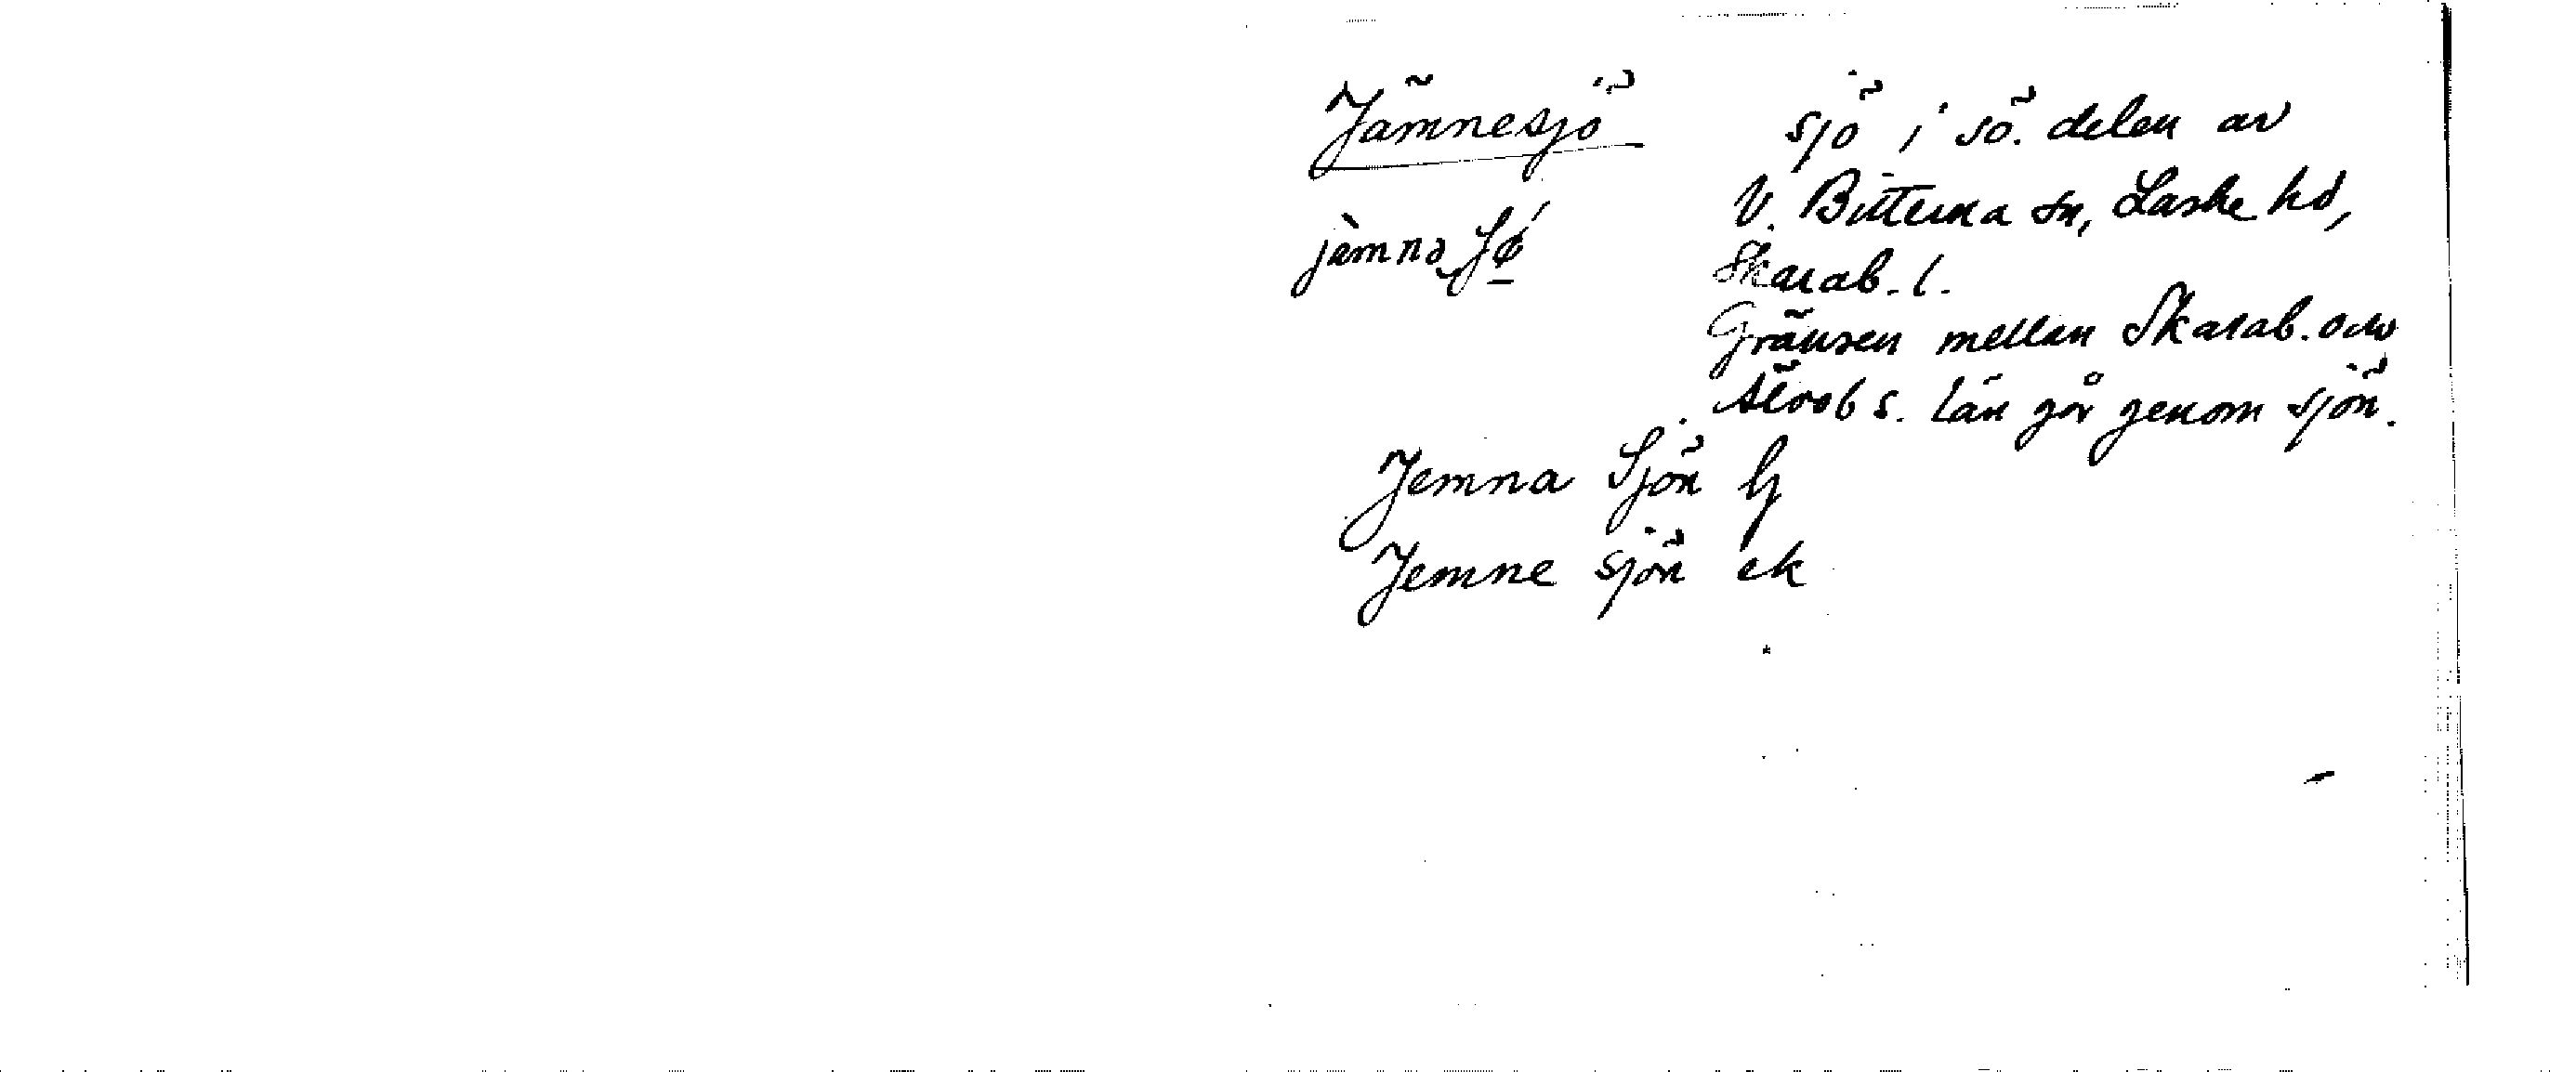 Jämnesjö
sjö i sö. delen av
V. Bitterna sn, Laske hd,
jèmnə
Skarab. l.
Gränsen mellan Skarab. och
Älvsb s. län går genom sjön.
Jemna Sjön G
Jemne sjön ek